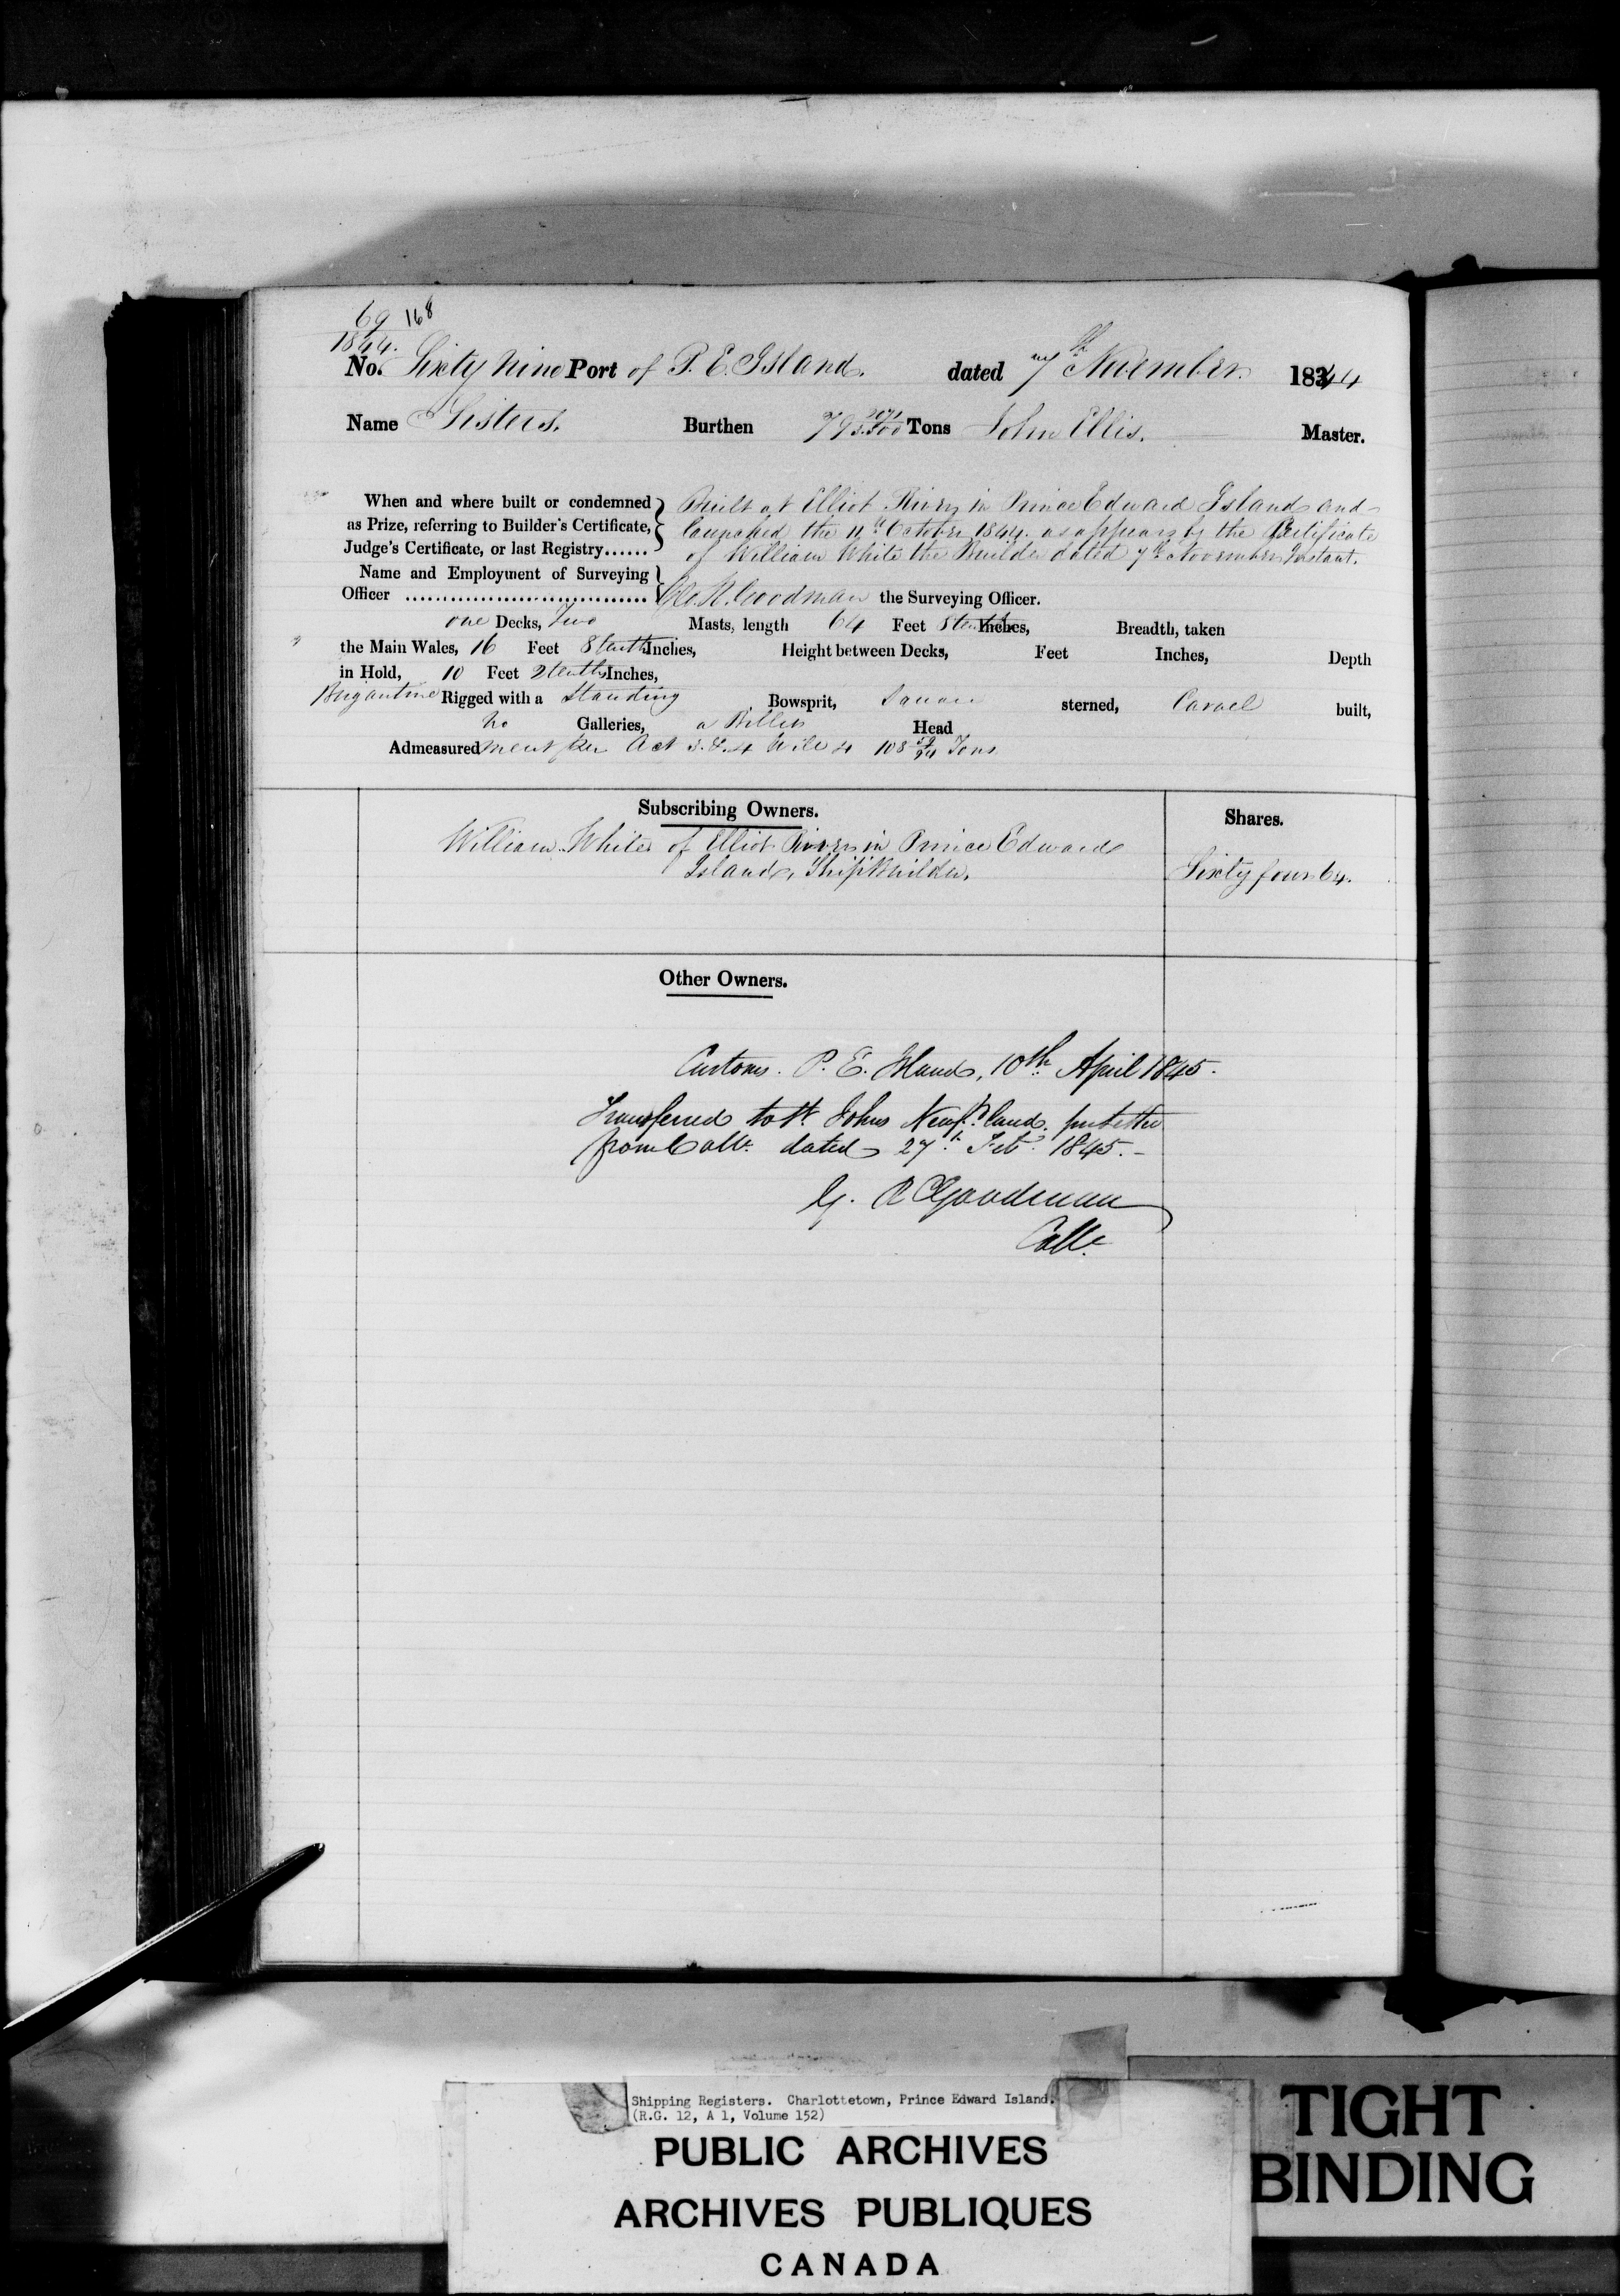 69 168
1844.
No. Sixty Nine Port of P. E. Island. dated 7th November 1844
Name Sisters. Burthen 79 Tons John Ellis. Master.
When and where built or condemned as Prize, referring to Builder's Certificate, Judge's Certificate, or last Registry......
Built at Elliot River in Prince Edward Island and
launched the 11th October 1844. as appears by the Certificate
of William White the Builder dated 7th November Instant.
Name and Employment of Surveying
Officer ................................ Geo. R. Goodman the Surveying Officer.
one Decks, Two Masts, length 64 Feet 8 tenths Inches, Breadth, taken
the Main Wales, 16 Feet 8 tenths Inches, Height between Decks, Feet Inches, Depth
in Hold, 10 Feet 2 tenths Inches,
Brigantine Rigged with a Standing Bowsprit, Square sterned, Carvel built,
no Galleries, a Billet Head
Admeasurement per Act 3 & 4 Will 4 108 59/94 Tons
Subscribing Owners. Shares.
William White of Elliot River in Prince Edward
Island, Shipbuilder. Sixty four 64.
Other Owners.
Customs. P. E. Island, 10th April 1845.
Transferred to St Johns Newfd land. letter
from Collr. dated 27th Feb 1845. -
G. R Goodman
Collr
Shipping Registers. Charlottetown, Prince Edward Island.
(R.G. 12, A 1, Volume 152)
PUBLIC ARCHIVES
ARCHIVES PUBLIQUES
CANADA
TIGHT
BINDING